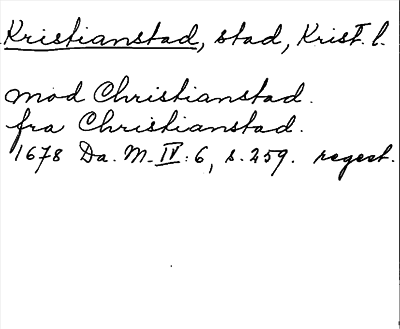 Kristianstad, stad, Krist. l.
mod Christianstad.
fra Christianstad.
1678 Da. M. IV: 6, s. 259. regest.